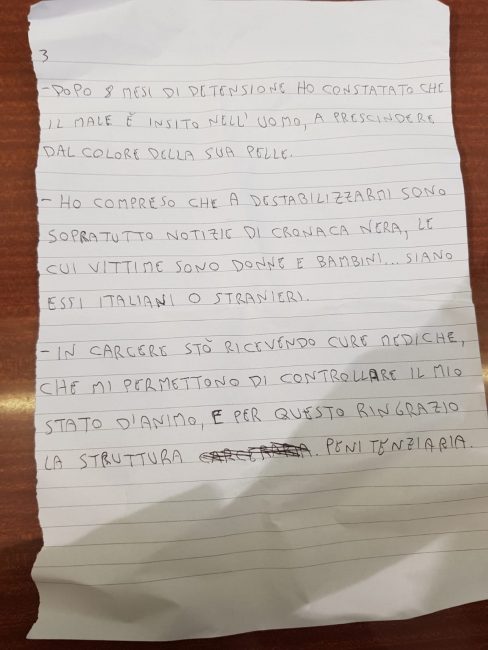 3
- DOPO 8 MESI DI DETENSIONE HO CONSTATATO CHE
IL MALE È INSITO NELL' UOMO, A PRESCINDERE
DAL COLORE DELLA SUA PELLE.
- HO COMPRESO CHE A DESTABILIZZARMI SONO
SOPRATUTTO NOTIZIE DI CRONACA NERA, LE
CUI VITTIME SONO DONNE E BAMBINI... SIANO
ESSI ITALIANI O STRANIERI.
- IN CARCERE STÒ RICEVENDO CURE MEDICHE,
CHE MI PERMETTONO DI CONTROLLARE IL MIO
STATO D'ANIMO, E PER QUESTO RINGRAZIO
LA STRUTTURA PENITENZIARIA.